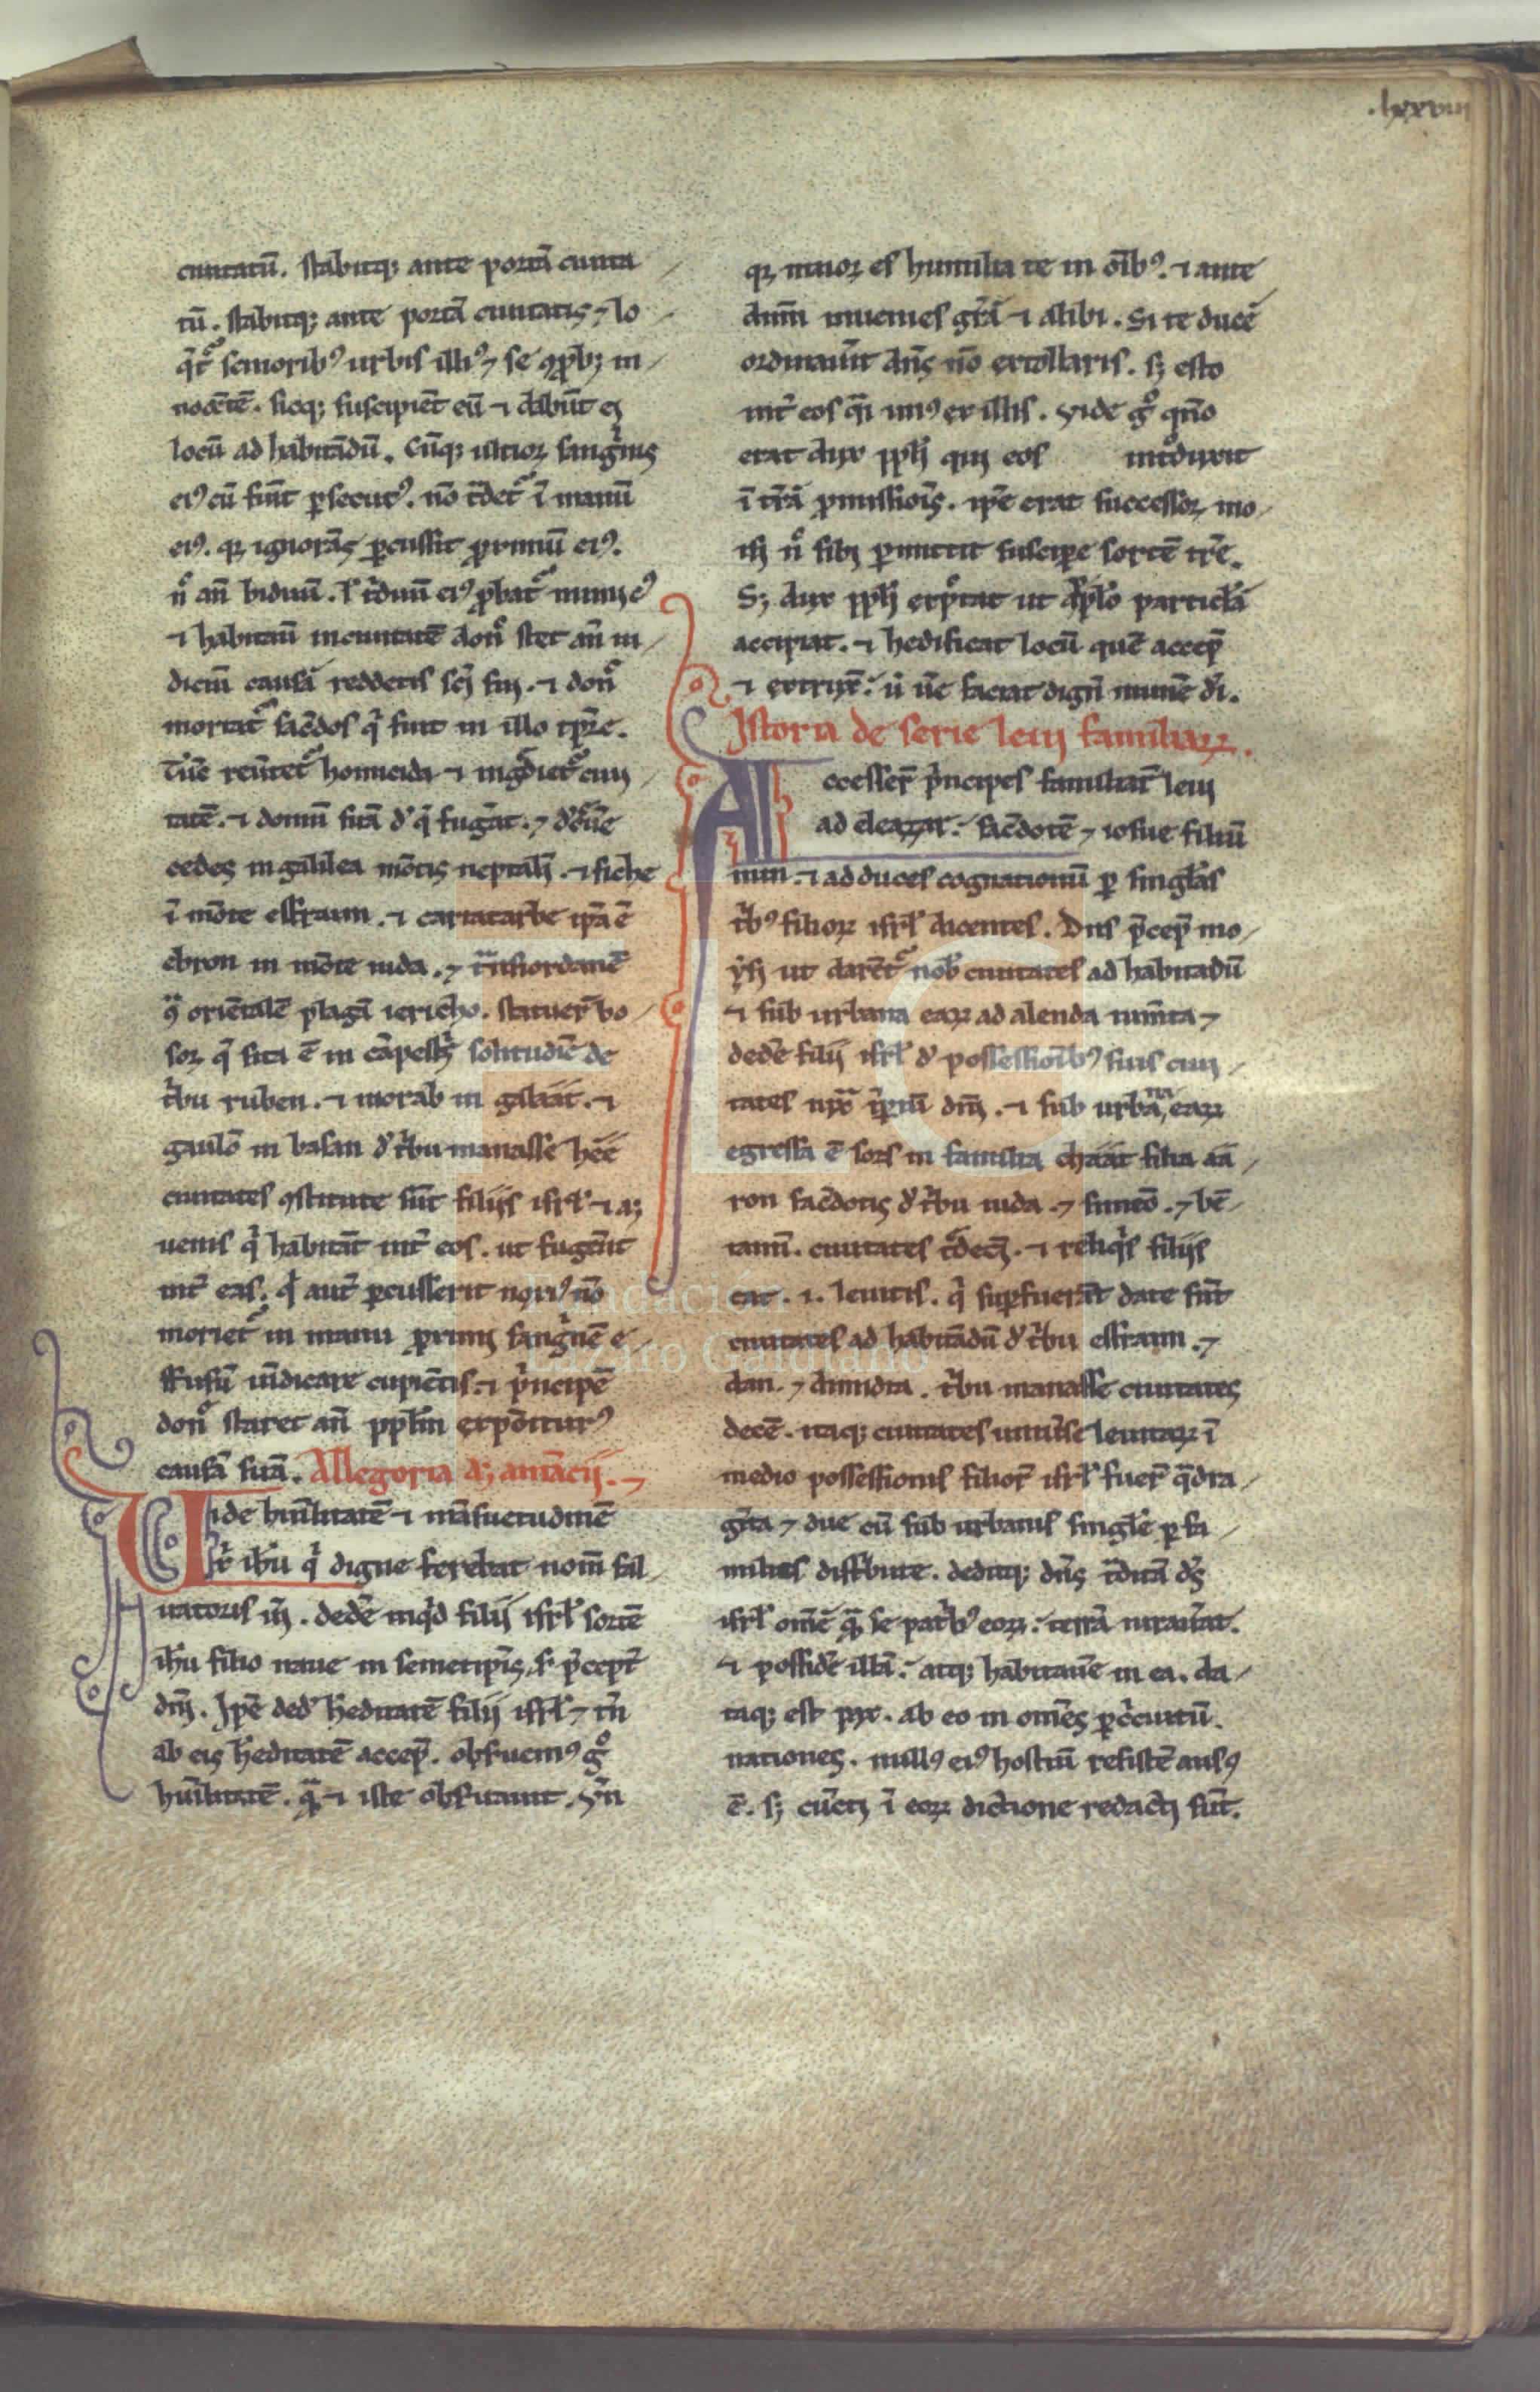 .lxxviii
ciuitatū. stabitq; ante portā ciuita
tū. stabitq; ante portā ciuitatis ⁊ lo
senioribꝰ urbis illiꝰ ⁊ se ꝓb; in
nocētē. sicq; suscipiēt eū ⁊ dabūt ei
locū ad habitādū. Cūq; ultor sanguīis
eiꝰ eū fuit ꝑsecutꝰ. nō t̄det̄ ī manū
eiꝰ. qꝛ ignorās ꝑcussit ꝓximū eiꝰ.
n̄ an̄ biduū. l̓ t̓duū eiꝰ ꝓbat̄
⁊ habitau̅ in ciuitatē don̄ stet an̄ iu
diciū causā reddetis sc̄i sui. ⁊ don̄
moriat̄ sac̄dos q̓ fuit in illo tꝑe.
Tūc reu̅tet̄ homicida ⁊ īg̓diet̄ ciui
tatē. ⁊ domū suā d̓ q̄ fug̓at. ⁊
cedes in galilea mōtis neptali. ⁊ sichē
ī mōte effraim. ⁊ cariatarbe ip̄a ē
ebron in mōte iuda. ⁊ t̓nsiordanē
ɔ̓ oriētalē plagā iericho. statuer̄ bo
sor q̄ sita ē in cāpest̓ solitudīe de
t̓bu ruben. ⁊ morab in galáát. ⁊
gaulō in basan d̓ t̓bu manasse héé
ciuitates ɔstitute sūt filijs isrl̓ ⁊ a;
uenis q̓ habitāt int̄ eos. ut fug̓ēt
int̄ eas. q̓ aut̄ ꝑcusserit nō
moriet̄ in manu ꝓximi sang̓nē e
ffusū uīdicare cupiētis. ⁊ p̓ncipē
don̄ staret an̄ ppl̄m exp̄oiturꝰ
causā suā. Allegoria
Uide hūilitatē ⁊ māsuetudinē
ih̄u q̓ digne ferebat nom̄ sal
uatoris n̄i. dedē inq̓d filij isrl̓ sortē
ih̄u filio naue in semetip̄is. p̄cept̄
dn̄i. Ip̄e ded̓ h̓editatē filij isrl̓ ⁊ t̄n
ab eis h̓editatē accep̄. obs̄uemꝰ g̊
hūilitatē. q̄ ⁊ iste obs̄uauit. Vn̄
qꝛ maior es humilia te in oībꝰ. ⁊ ante
dn̄m inuenies gr̄ā ⁊ alibi. Si te ducē
ordinauīt dn̄s nō extollaris. s; esto
int̄ eos q̄i unꝰ ex illis. Vide g̊ qn̄o
erat dux ppl̓i qui eos int̊duxit
ī t̄rā ꝓmissiōis. ip̄e erat successor mo
isi n̊ sibi ꝑmittit suscipe sortē t̄re.
S; dux ppl̓i exp̄tat ut ppl̓o particl̄ā
accipiat. ⁊ hedificat locū quē accep̄
⁊ extruxit. ū ūe faciat dign̄ munē di.
Istoria de serie leui familiarꝝ.
Accesser̄ p̓ncipes familiar̄ leui
ad eleazar. sac̄dotē ⁊ iosue filiū
nun. ⁊ ad duces cognationū ꝑ singl̄as
t̓bꝰ filiorꝝ isrl̓ dicentes. Dn̄s p̄cep̄ mo
ysi ut darēt̄ nob̄ ciuitates ad habitādū
⁊ sub urbana earꝝ ad alenda iumēta ⁊
dedē filij isrl̓ d̓ possessioībꝰ suis ciui
tates iux̄ īpiū dn̄i. ⁊ sub urbana earꝝ
egressa ē sors in familia cháát filia aā
ron sac̄dotis d̓ t̓bu iuda. ⁊ simeō. ⁊ bē
iamī. ciuitates t̓decī. ⁊ reliq̓s filijs
cat. i. leuitis. q̓ supfuer̄t date sūt
ciuitates ad habitādū d̓ t̓bu effraim. ⁊
dan. ⁊ dimidia. t̓bu manasse ciuitates
decē. itaq; ciuitates uniūse leuitarꝝ ī
medio possessionis filior̄ isrl̓ fuer̄ q̄dra
g̓ta ⁊ due cū sub urbanis singl̄e ꝑ fa
milias dist̓bute. deditq; dn̄s
isrl̓ omē q̄ se pat̓bꝰ eorꝝ. terrā iurau̅at.
⁊ possidē illā. atq; habitauē in ea. da
taq; est pax. ab eo in omēs ꝑ c̓cuitū.
nationes. nullꝰ eiꝰ hostiū resistē ausꝰ
ē. s; cūcti ī eorꝝ dictione redacti sūt.
Fundación
Lázaro Galdiano